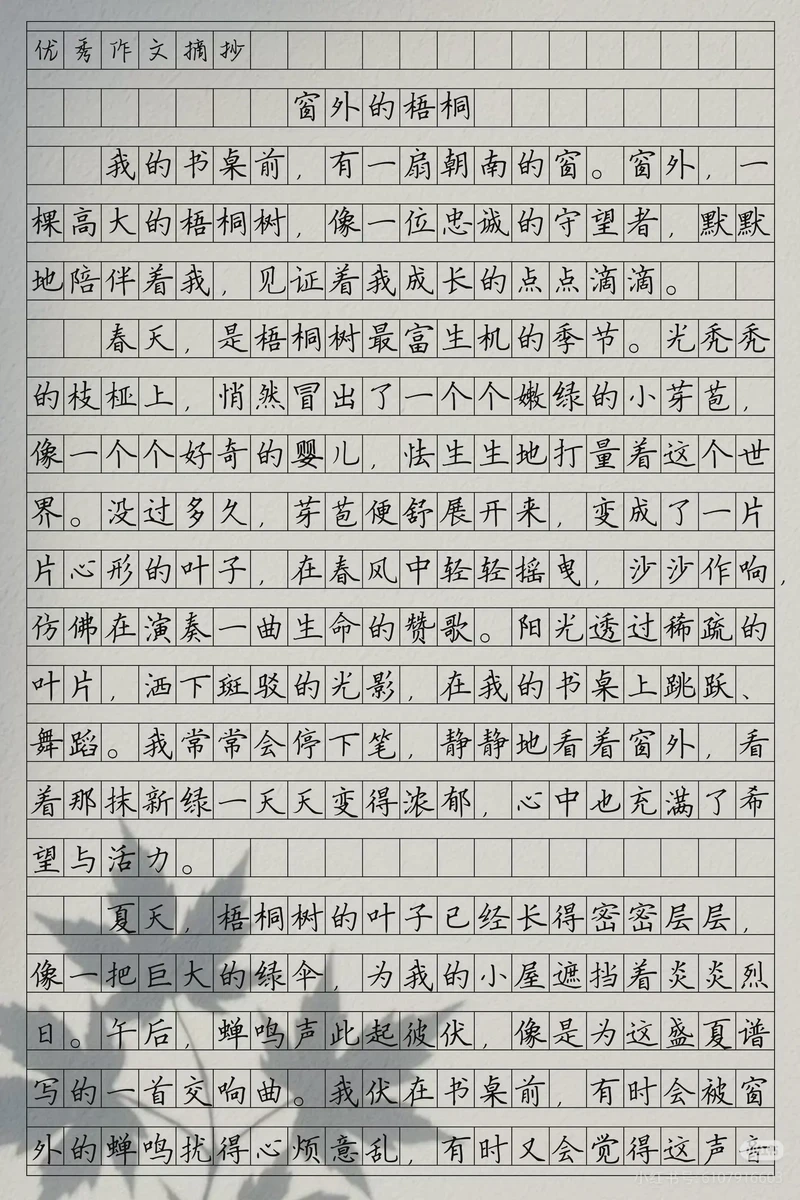 优秀作文摘抄
窗外的梧桐
我的书桌前，有一扇朝南的窗。窗外，一
棵高大的梧桐树，像一位忠诚的守望者，默默
地陪伴着我，见证着我成长的点点滴滴。
春天，是梧桐树最富生机的季节。光秃秃
的枝桠上，悄然冒出了一个个嫩绿的小芽苞，
像一个个好奇的婴儿，怯生生地打量着这个世
界。没过多久，芽苞便舒展开来，变成了一片
片心形的叶子，在春风中轻轻摇曳，沙沙作响，
仿佛在演奏一曲生命的赞歌。阳光透过稀疏的
叶片，洒下斑驳的光影，在我的书桌上跳跃、
舞蹈。我常常会停下笔，静静地看着窗外，看
着那抹新绿一天天变得浓郁，心中也充满了希
望与活力。
夏天，梧桐树的叶子已经长得密密层层，
像一把巨大的绿伞，为我的小屋遮挡着炎炎烈
日。午后，蝉鸣声此起彼伏，像是为这盛夏谱
写的一首交响曲。我伏在书桌前，有时会被窗
外的蝉鸣扰得心烦意乱，有时又会觉得这声音